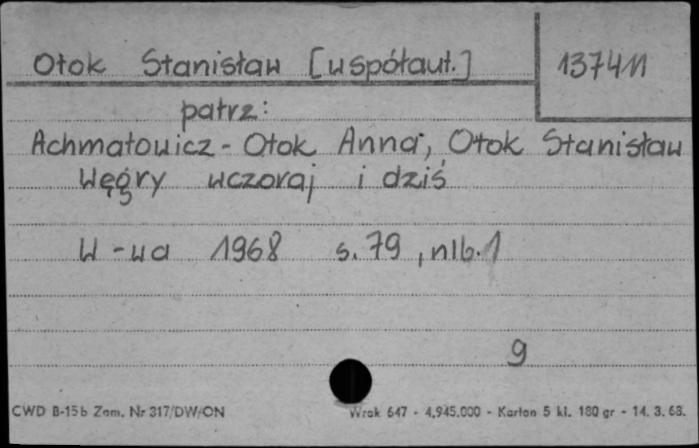 Otok Stanisław [współaut.]
13741
patrz:
Achmatowicz-Otok Anna, Otok Stanisław
Węgry wczoraj i dziś
W-wa 1968 s. 79, nlb. 1
9
CWD B-15b Zam. Nr 317/DW/ON
Wrak 647 - 4,945.000 - Karton 5 kl. 180 gr - 14. 3. 68.